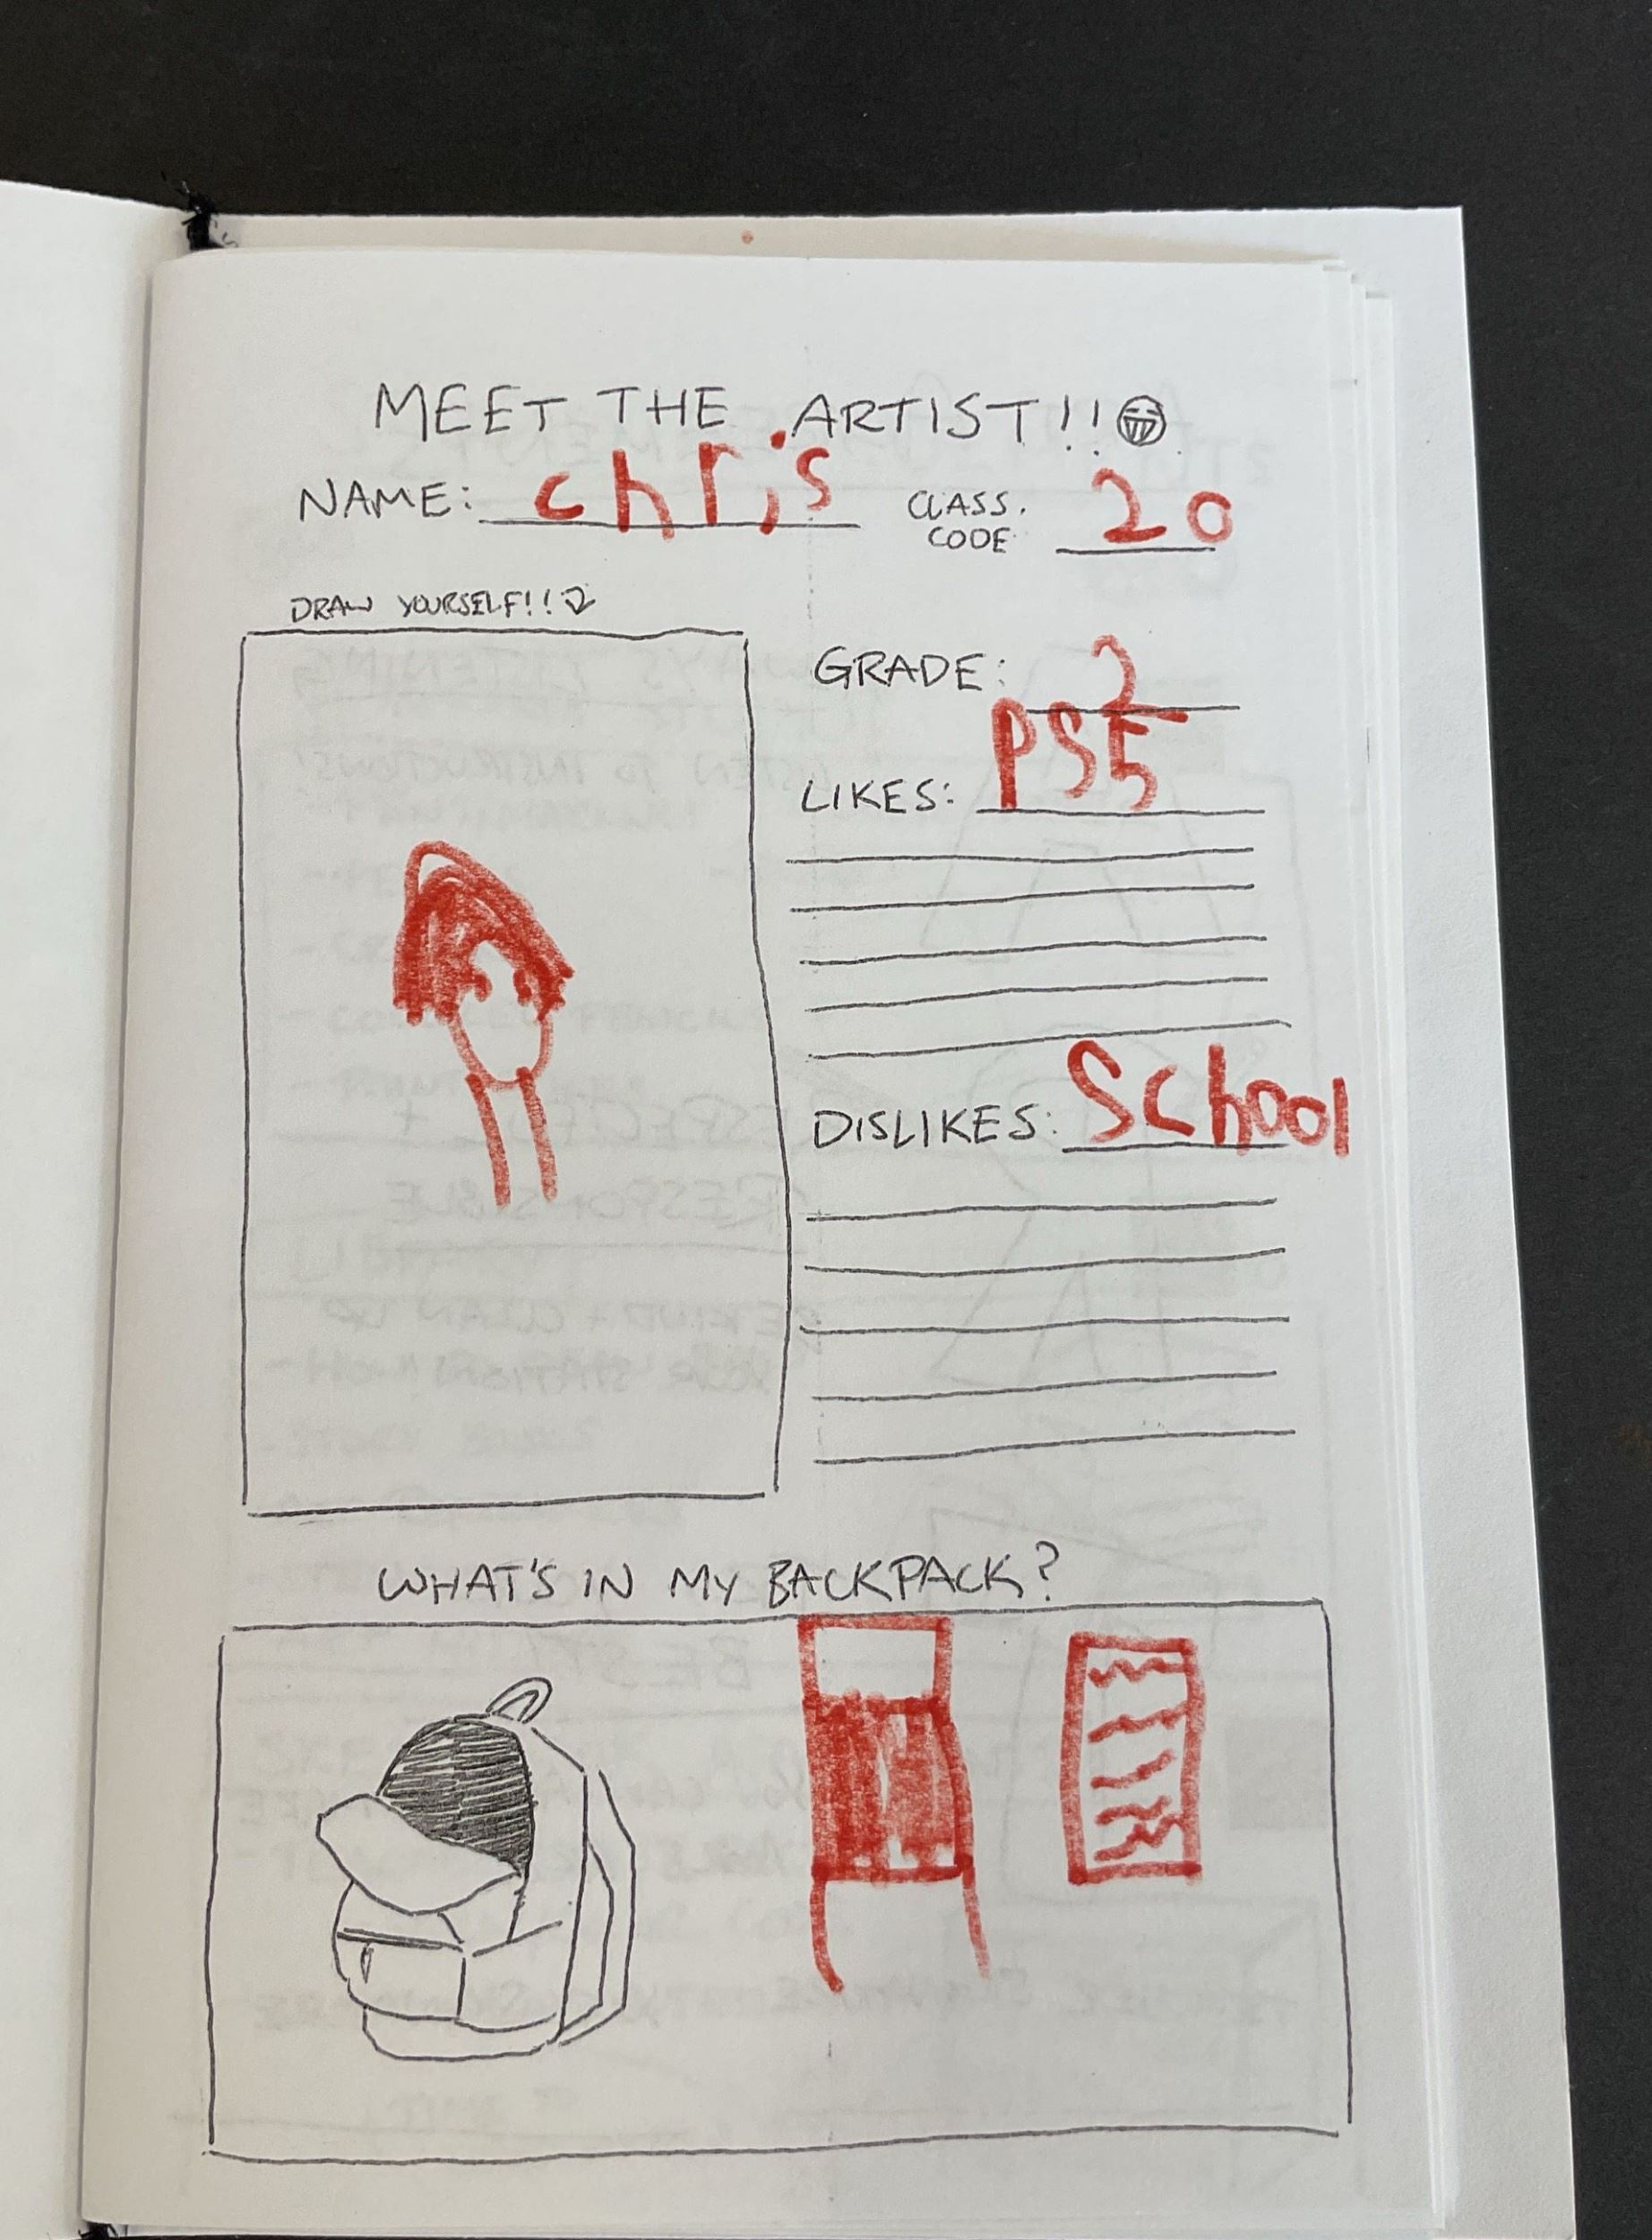 MEET THE ARTIST!!
NAME: chris CLASS. CODE 20
DRAW YOURSELF!!
GRADE: 2
LIKES: PS5
DISLIKES: School
WHAT'S IN MY BACKPACK?